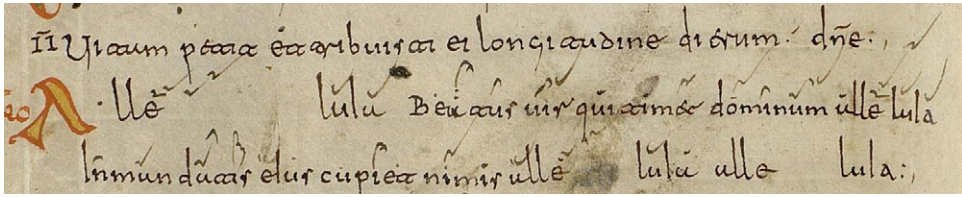 II Uitam petiit et tribuisti ei longitudine dierum. dñe:,
Alle lula Beatus uir qui timet dominum alle lula
In mandatis eius cupiet nimis alle lula alle lula:,